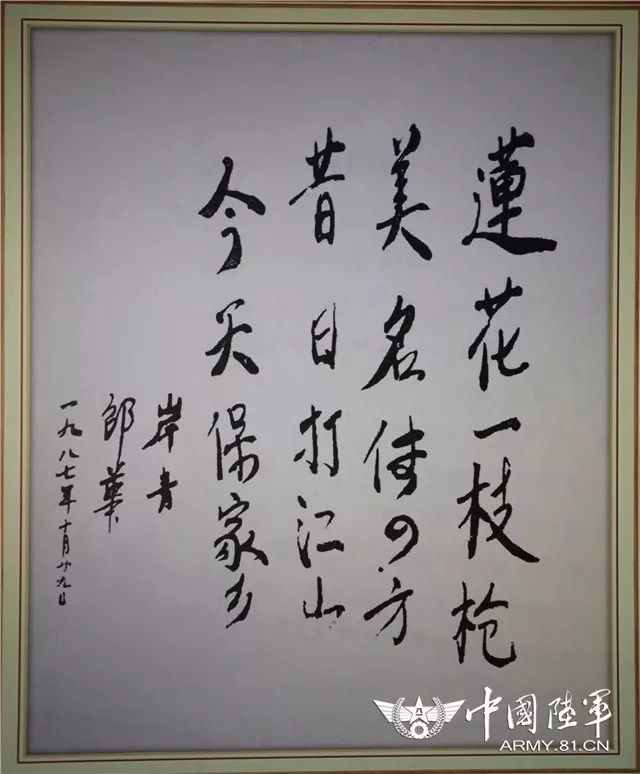 蓮花一枝枪
美名传四方
昔日打江山
今天保家乡
岸青
邵華
一九八七年十月廿九日
中國陸軍
ARMY.81.CN